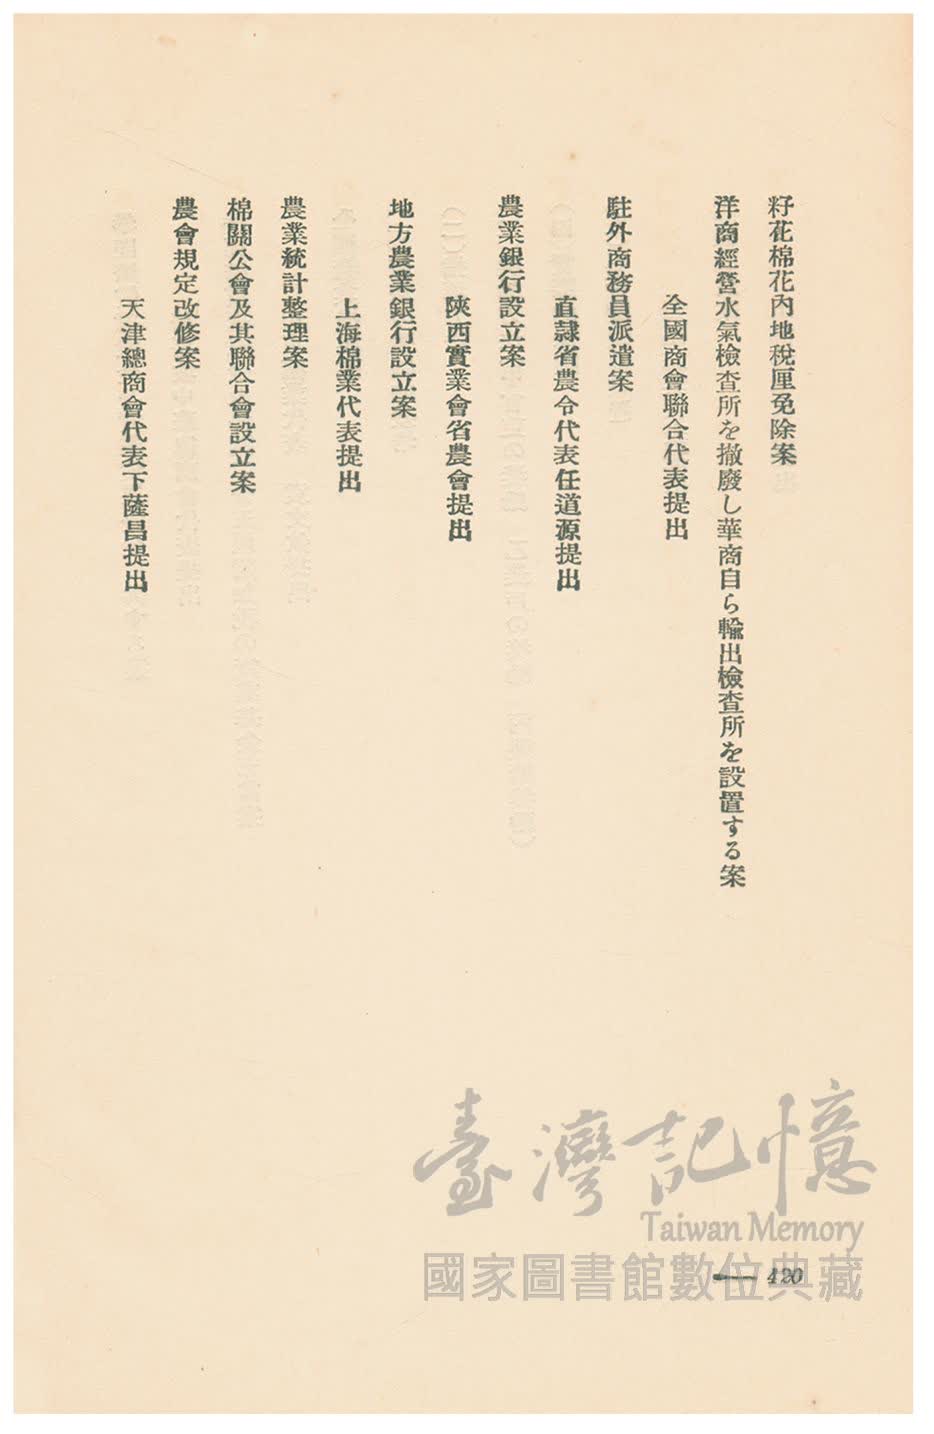 籽花棉花內地稅厘免除案
洋商經營水氣檢查所を撤廢し華商自ら輸出檢查所を設置する案
全國商會聯合代表提出
駐外商務員派遣案
直隷省農令代表任道源提出
農業銀行設立案
陝西實業會省農會提出
地方農業銀行設立案
上海棉業代表提出
農業統計整理案
棉關公會及其聯合會設立案
農會規定改修案
天津總商會代表下薩昌提出
臺灣記憶
Taiwan Memory
國家圖書館數位典藏
— 420